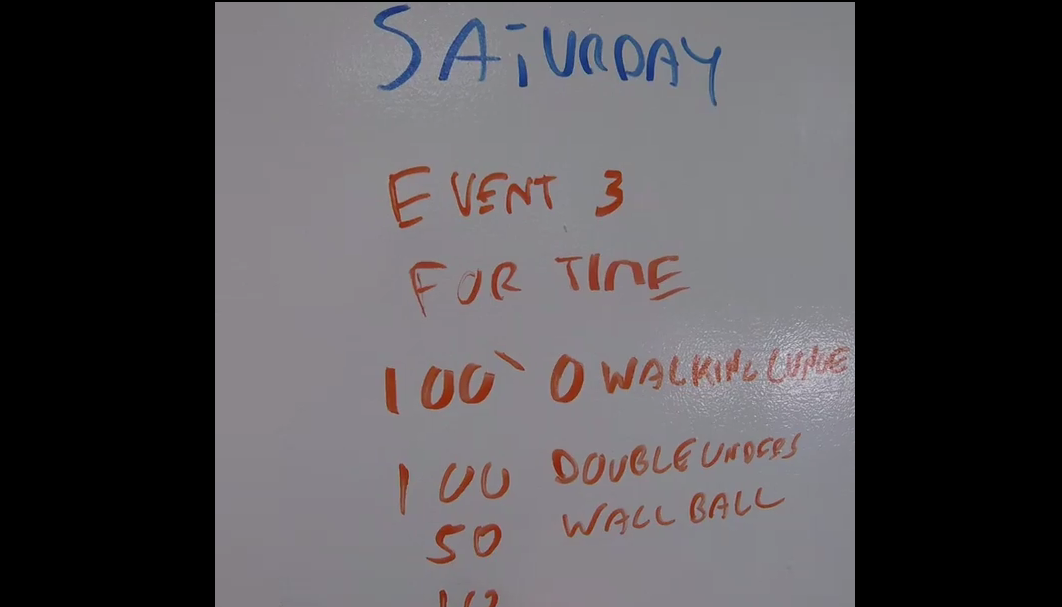 SATURDAY
EVENT 3
FOR TIME
100` O WALKING LUNGE
100 DOUBLEUNDERS
50 WALL BALL